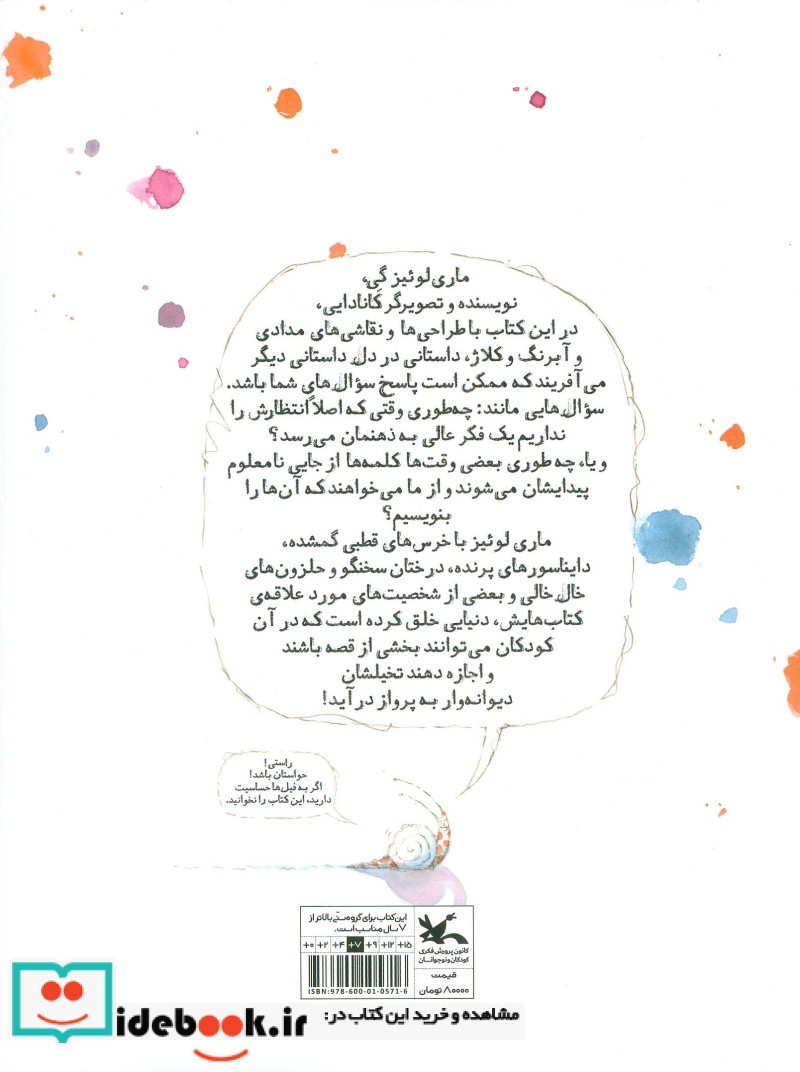 ماری‌لوئیز گی،
نویسنده و تصویرگر کانادایی،
در این کتاب با طراحی‌ها و نقاشی‌های مدادی
و آبرنگ و کلاژ، داستانی در دل داستانی دیگر
می‌آفریند که ممکن است پاسخ سؤال‌های شما باشد.
سؤال‌هایی مانند: چه‌طوری وقتی که اصلاً انتظارش را
نداریم یک فکر عالی به ذهنمان می‌رسد؟
و یا، چه‌طوری بعضی وقت‌ها کلمه‌ها از جایی نامعلوم
پیدایشان می‌شوند و از ما می‌خواهند که آن‌ها را
بنویسیم؟
ماری لوئیز با خرس‌های قطبی گمشده،
دایناسورهای پرنده، درختان سخنگو و حلزون‌های
خال‌خالی و بعضی از شخصیت‌های مورد علاقه‌ی
کتاب‌هایش، دنیایی خلق کرده است که در آن
کودکان می‌توانند بخشی از قصه باشند
و اجازه دهند تخیلشان
دیوانه‌وار به پرواز درآید!
راستی!
حواستان باشد!
اگر به فیل‌ها حساسیت
دارید، این کتاب را نخوانید.
این کتاب برای گروه سنّی بالاتر از
۷ سال مناسب است.
+۰ +۲ +۴ +۷ +۹ +۱۲ +۱۵
ISBN: 978-600-01-0571-6
کانون پرورش فکری
کودکان و نوجوانان
قیمت
۸۰۰۰۰ تومان
مشاهده و خرید این کتاب در:
idebook.ir